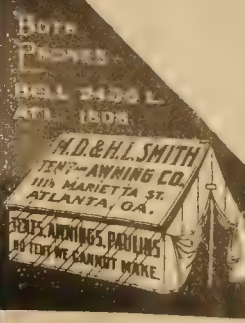 BOTH
PHONES
BELL
ATL. 1808
M.D. & H.L. SMITH
TENT AND AWNING CO.
111½ MARIETTA ST.
ATLANTA, GA.
TENTS, AWNINGS, PAULINS
NO TENT WE CANNOT MAKE.